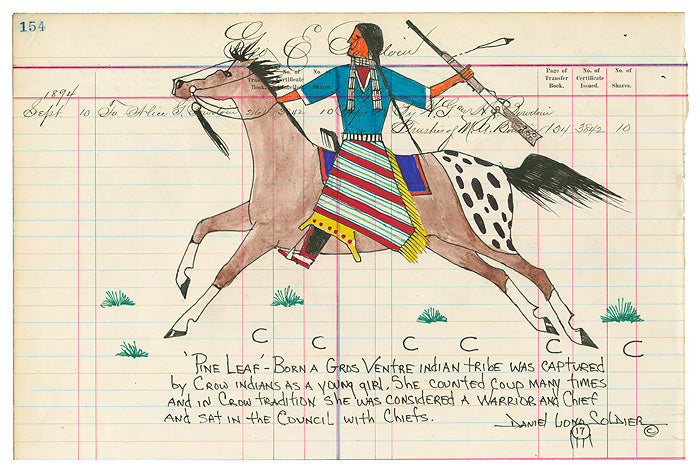 154
Geo E Bowdoin
Page of Transfer Book. No. of Certificate Issued. No. of Shares.
1894
Sept. 10 To Alice G. Bowdoin 261 3842 10 By Geo Bowdoin
134 3842 10
C C C C C C
'PINE LEAF' - BORN A GROS VENTRE INDIAN TRIBE WAS CAPTURED
by CROW INDIANS AS A YOUNG GIRL. SHE COUNTED COUP MANY TIMES
AND IN CROW TRADITION SHE WAS CONSIDERED A WARRIOR AND CHIEF
AND SAT IN THE COUNCIL WITH CHIEFS.
DANIEL LONG SOLDIER ©
17